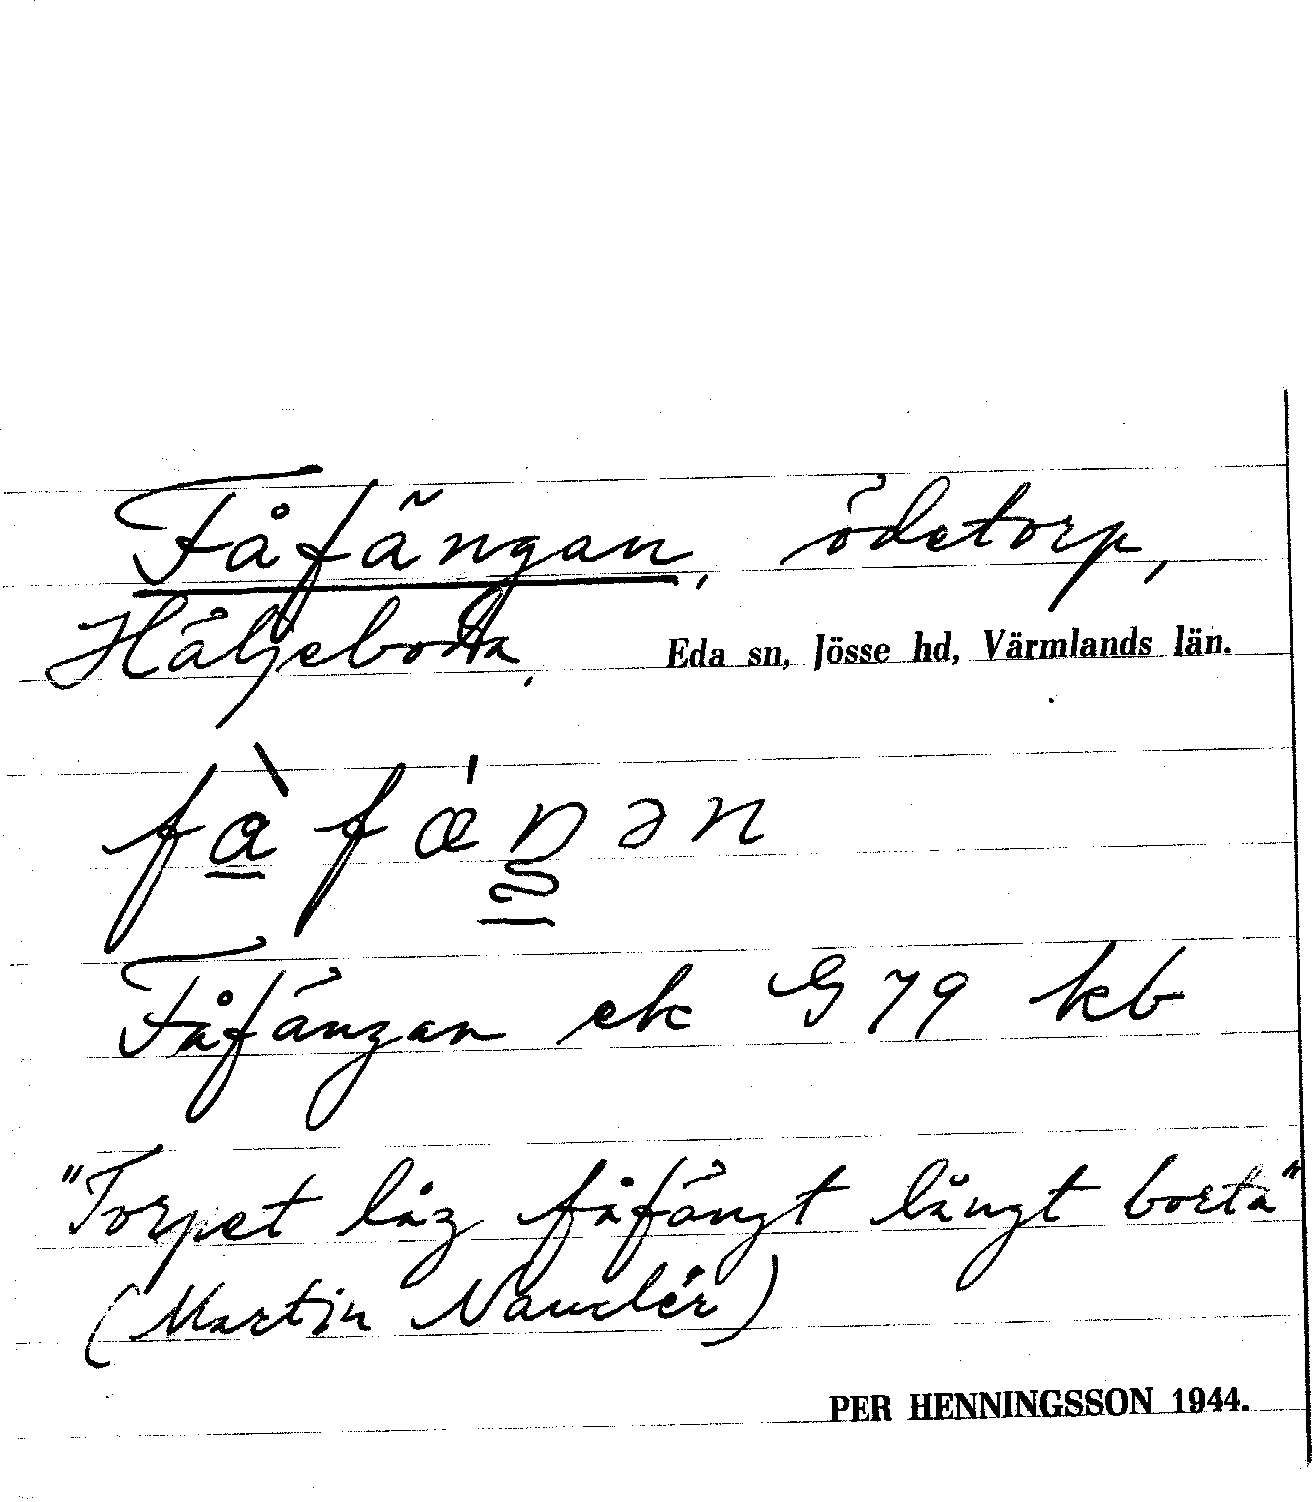 Fåfängan, ödetorp,
Häljeboda, Eda sn, Jösse hd, Värmlands län.
Fåfängan ek G 79 kb
"Torpet låg fåfängt långt borta"
(Martin Nauclér)
PER HENNINGSSON 1944.